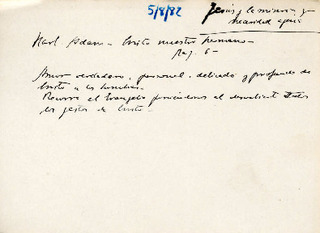 5/8/82
Jesús y la miseria y
necesidad ajena
Karl Adam - Cristo nuestro hermano -
pag 6 -
Amor verdadero, personal, delicado y profundo de
Cristo a los hombres.
Recorre el Evangelio poniéndonos al descubierto
los gestos de Cristo.